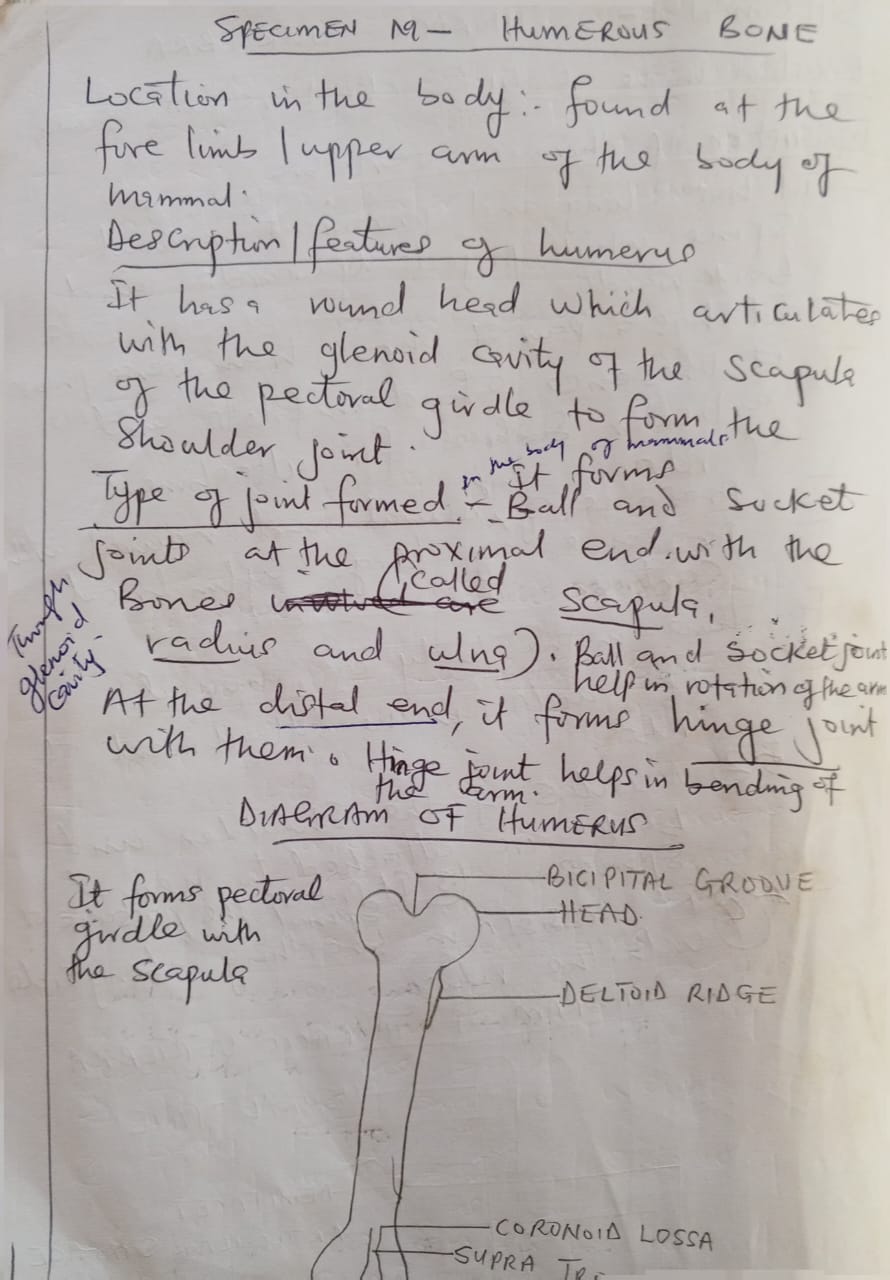 SPECIMEN M - HUMEROUS BONE
Location in the body:- found at the
fore limb / upper arm of the body of
mammal.
Description / features of humerus
It has a round head which articulates
with the glenoid cavity of the scapula
of the pectoral girdle to form the
Shoulder joint.
in the body of mammals
It forms
Type of joint formed - Ball and Socket
joints at the proximal end with the
(called
Bones involved are Scapula,
Through glenoid cavity.
radius and ulna). Ball and Socket joint
help in rotation of the arm
At the distal end, it forms hinge joint
with them. Hinge joint helps in bending of
the arm.
DIAGRAM OF HUMERUS
It forms pectoral
girdle with
the scapula
BICIPITAL GROOVE
HEAD
DELTOID RIDGE
CORONOID LOSSA
SUPRA